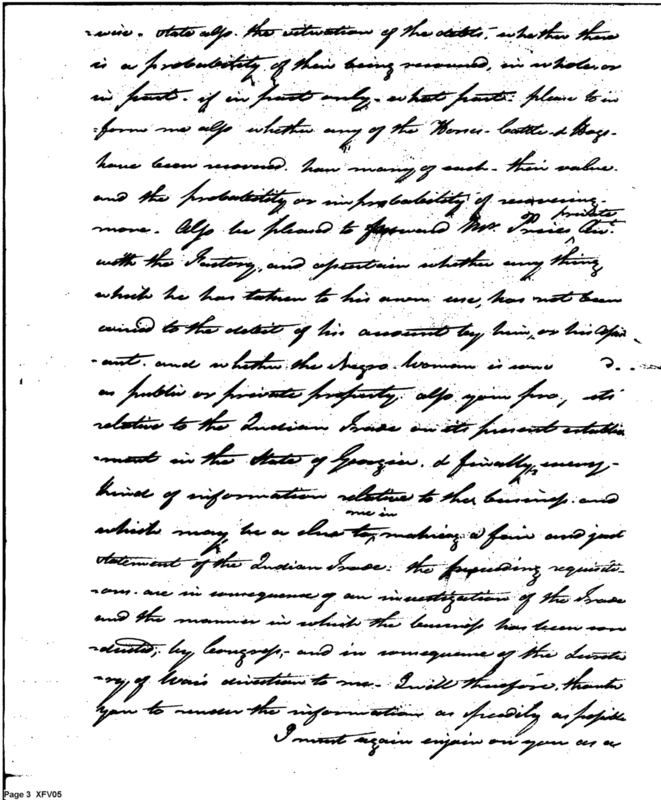 -wise. state also the situation of the debts, whether there
is a probability of their being recovered, in whole or
in part. if in part only, what part. please to in
-form me also whether any of the Horses. Cattle & Hogs
have been recovered. how many of each. their value.
and the probability or improbability of recovering
more. Also be pleased to forward Mr. Prices private Act.
with the Factory, and ascertain whether any thing
which he has taken to his own use, has not been
carried to the debit of his account by him, or his Assis
-ant. and whether the Negro Woman is
as public or private property. also your
relative to the Indian Trade on its present establis
-ment in the State of Georgia. & finally, every
kind of information relative to the business. and
which may be a clue to me in making a fair and just
statement of the Indian Trade. the preceeding requisiti-
-ons. are in consequence of an investigation of the Trade
and the manner in which the business has been con
-ducted, by Congress, and in consequence of the Secreta
-ry of Wars direction to me. I will therefore, thank
you to render the information as speedily as possible
I must again enjoin on you as a
Page 3 XFV05